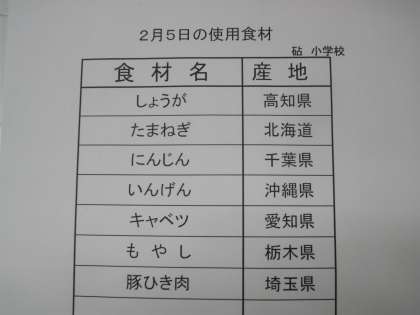 2月5日の使用食材
砧 小学校
食材名 産地
しょうが 高知県
たまねぎ 北海道
にんじん 千葉県
いんげん 沖縄県
キャベツ 愛知県
もやし 栃木県
豚ひき肉 埼玉県